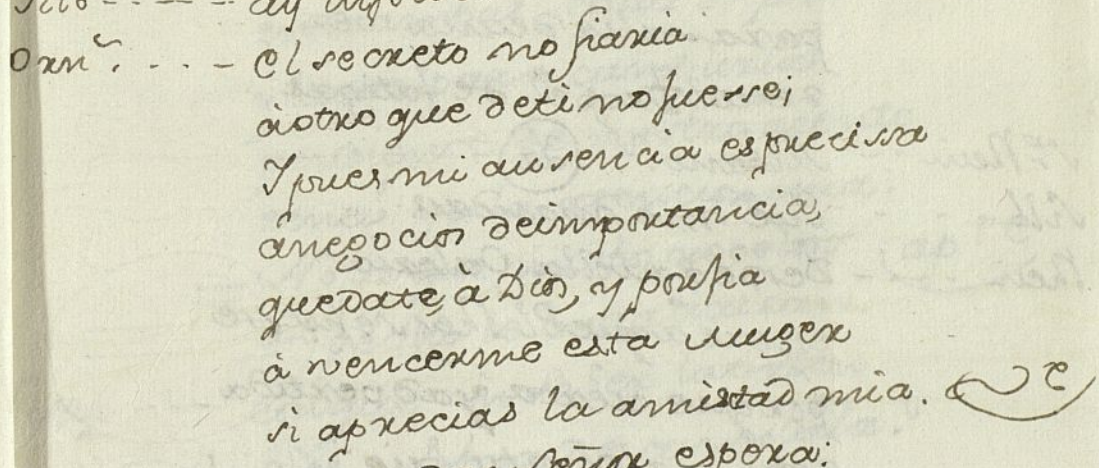 Orn~. - - - - El secreto no fiaria
à otro que de ti no fuesse;
Y pues mi ausencia es precissa
a negocios de importancia,
quedate, à Dios, y porfia
à vencerme esta muger
si aprecias la amistad mia.
Señor espera: